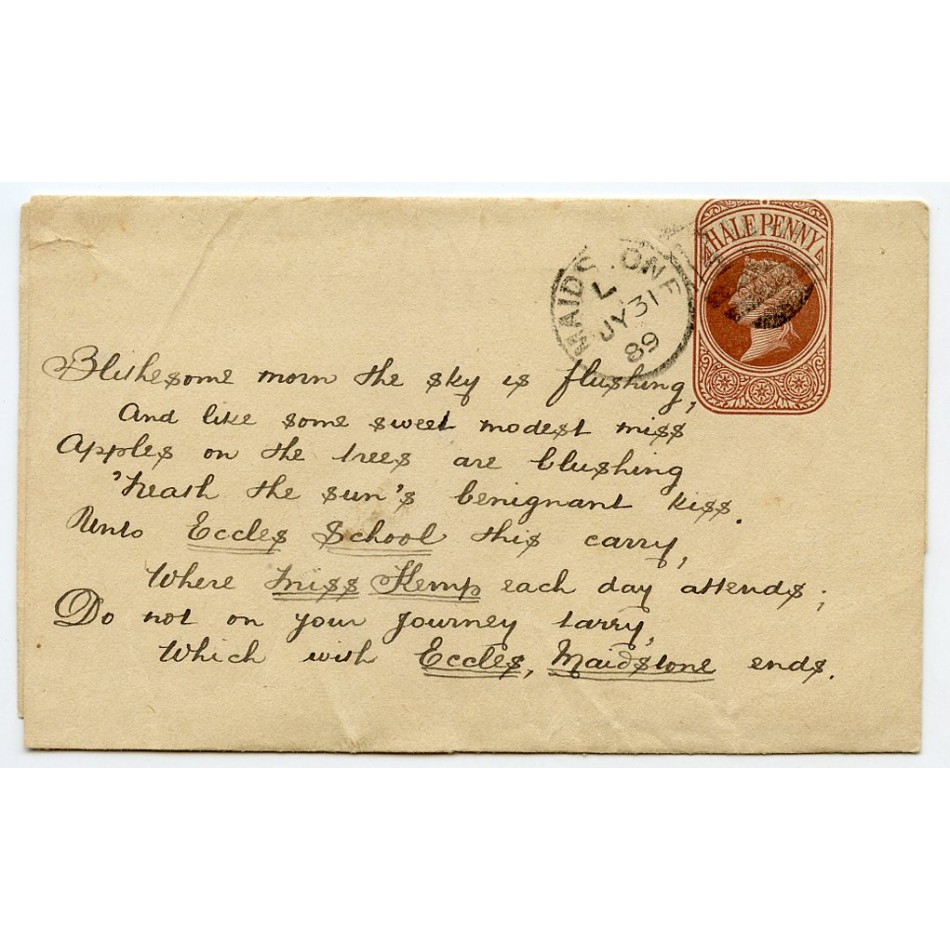 HALE PENNY
MAIDSTONE
L
JY 31
89
Blithesome morn the sky is flushing,
And like some sweet modest miss
Apples on the trees are blushing
'Neath the sun's benignant kiss.
Unto Eccles School this carry,
Where Miss Hemp each day attends;
Do not on your journey tarry,
Which with Eccles, Maidstone ends.